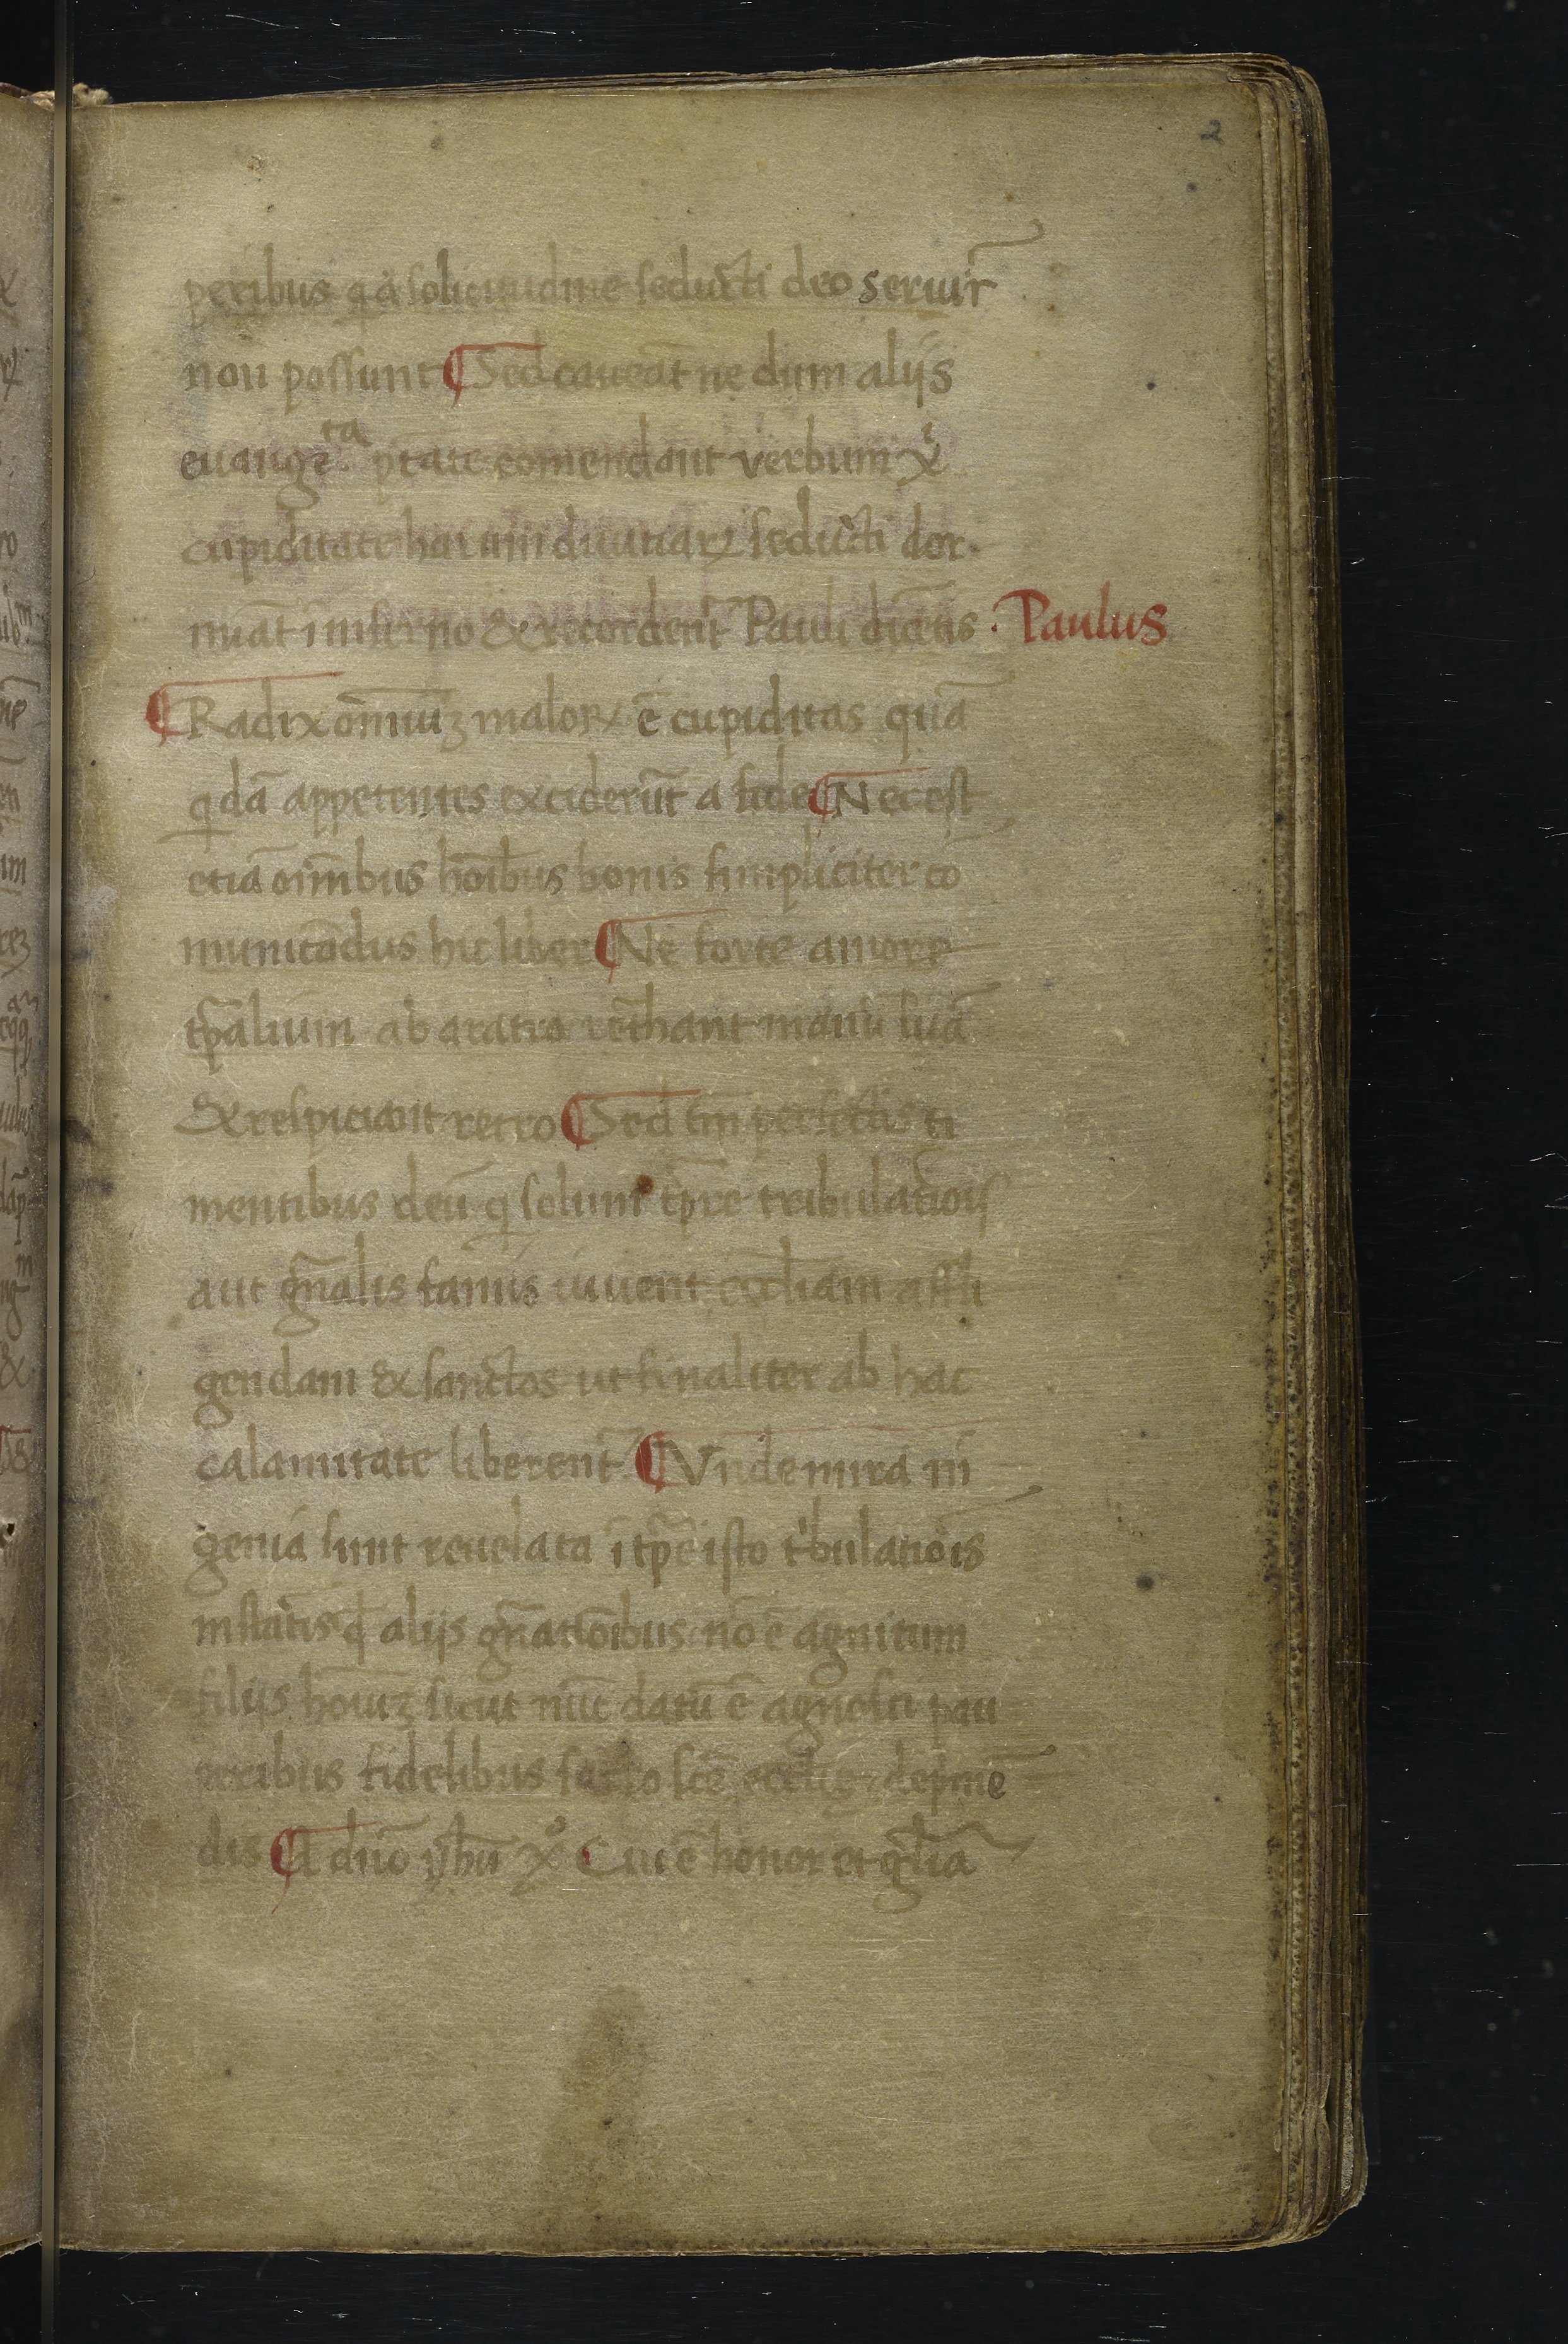 2
peribus q̇ a solicitudine seducti deo seruir̄
non possunt ¶ Sed caueāt ne dum alijs
euangꝫᵗᵃ ptāte comendāt verbum xⁱ
cupiditate diuitiaꝝ seducti dor
miāt ī inferno & recordent̄ Pauli dicētis · Paulus
¶ Radix omniuꝫ maloꝝ ē cupiditas quā
qdā appetentes exciderūt a fide ¶ Nec est
etiā omībus hoībus bonis simpliciter cō
municādus hic liber ¶ Ne forte amore
tp̄alium ab aratro rethant manū suā
& respiciant retro ¶ Sed tm̄ perfectis ti
mentibus deū q̄ solum tp̄re tribulatiōis
aut gn̄alis famis iuuent eccl̄iam affli
gendam & sanctos ut finaliter ab hac
calamitate liberent̄ ¶ Vnde mira in
genia sunt reuelata ī tp̄e isto tⁱbulatiōis
instātis qđ alijs gn̄atiōibus nō ē agnitum
filijs homiuꝫ sicut nūc datū ē agnosci pau
peribus fidelibus scē deprie
dis ¶ A dn̄o yhu xº Cui ē honor et gl̄ia